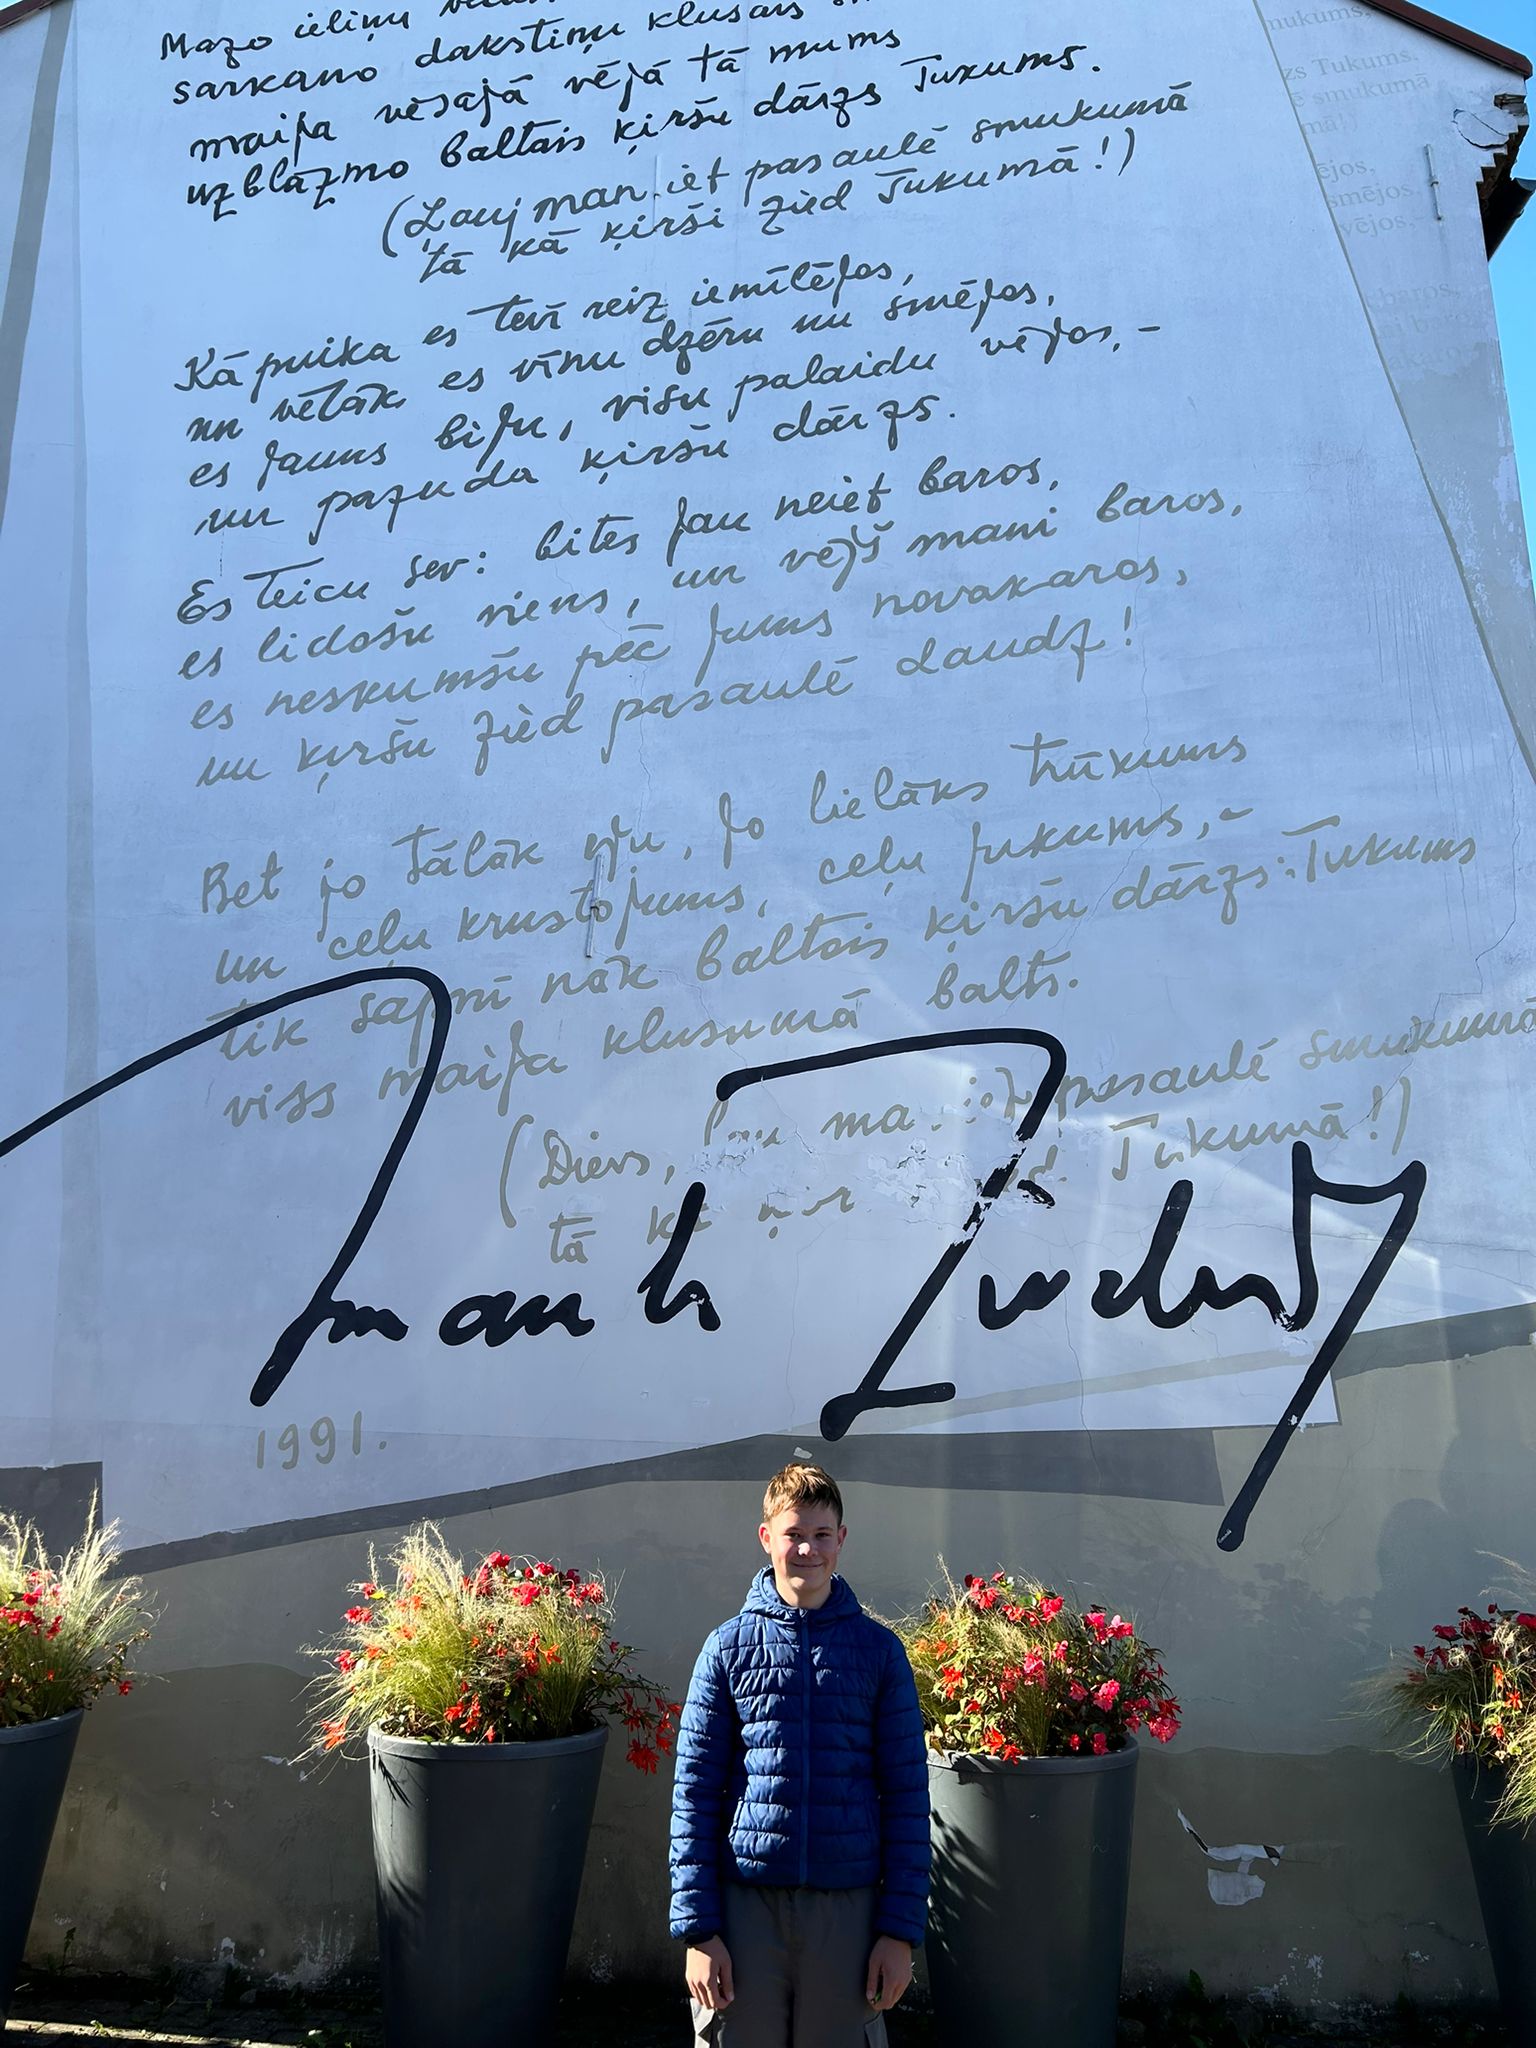 Mazo ieliņu
sarkano dakstiņu klusais
maija vēsajā vējā tā mums
uzblāzmo baltais ķiršu dārzs Tukums.
(Ļauj man iet pasaulē smukumā
tā kā ķirši zied Tukumā!)
Kā puika es tevī reiz iemīlējos,
un vēlāk es vīnu dzēru un smējos,
es jauns biju, visu palaidu vējos, –
un pazuda ķiršu dārzs.
Es teicu sev: bites jau neiet baros,
es lidošu viens, un vējš mani baros,
es neskumšu pēc jums novakaros,
un ķiršu zied pasaulē daudz!
Bet jo tālāk eju, jo lielāks trūkums
un ceļu krustojums, ceļu jukums, –
tik sapnī nāk baltais ķiršu dārzs: Tukums
viss maija klusumā balts.
(Dievs, man iet pasaulē smukumā
tā kā Tukumā!)
Imants Ziedonis
1991.
mukums,
zs Tukums.
ē smukumā
mā!)
ējos,
smējos,
vējos,
baros,
baros
akaros